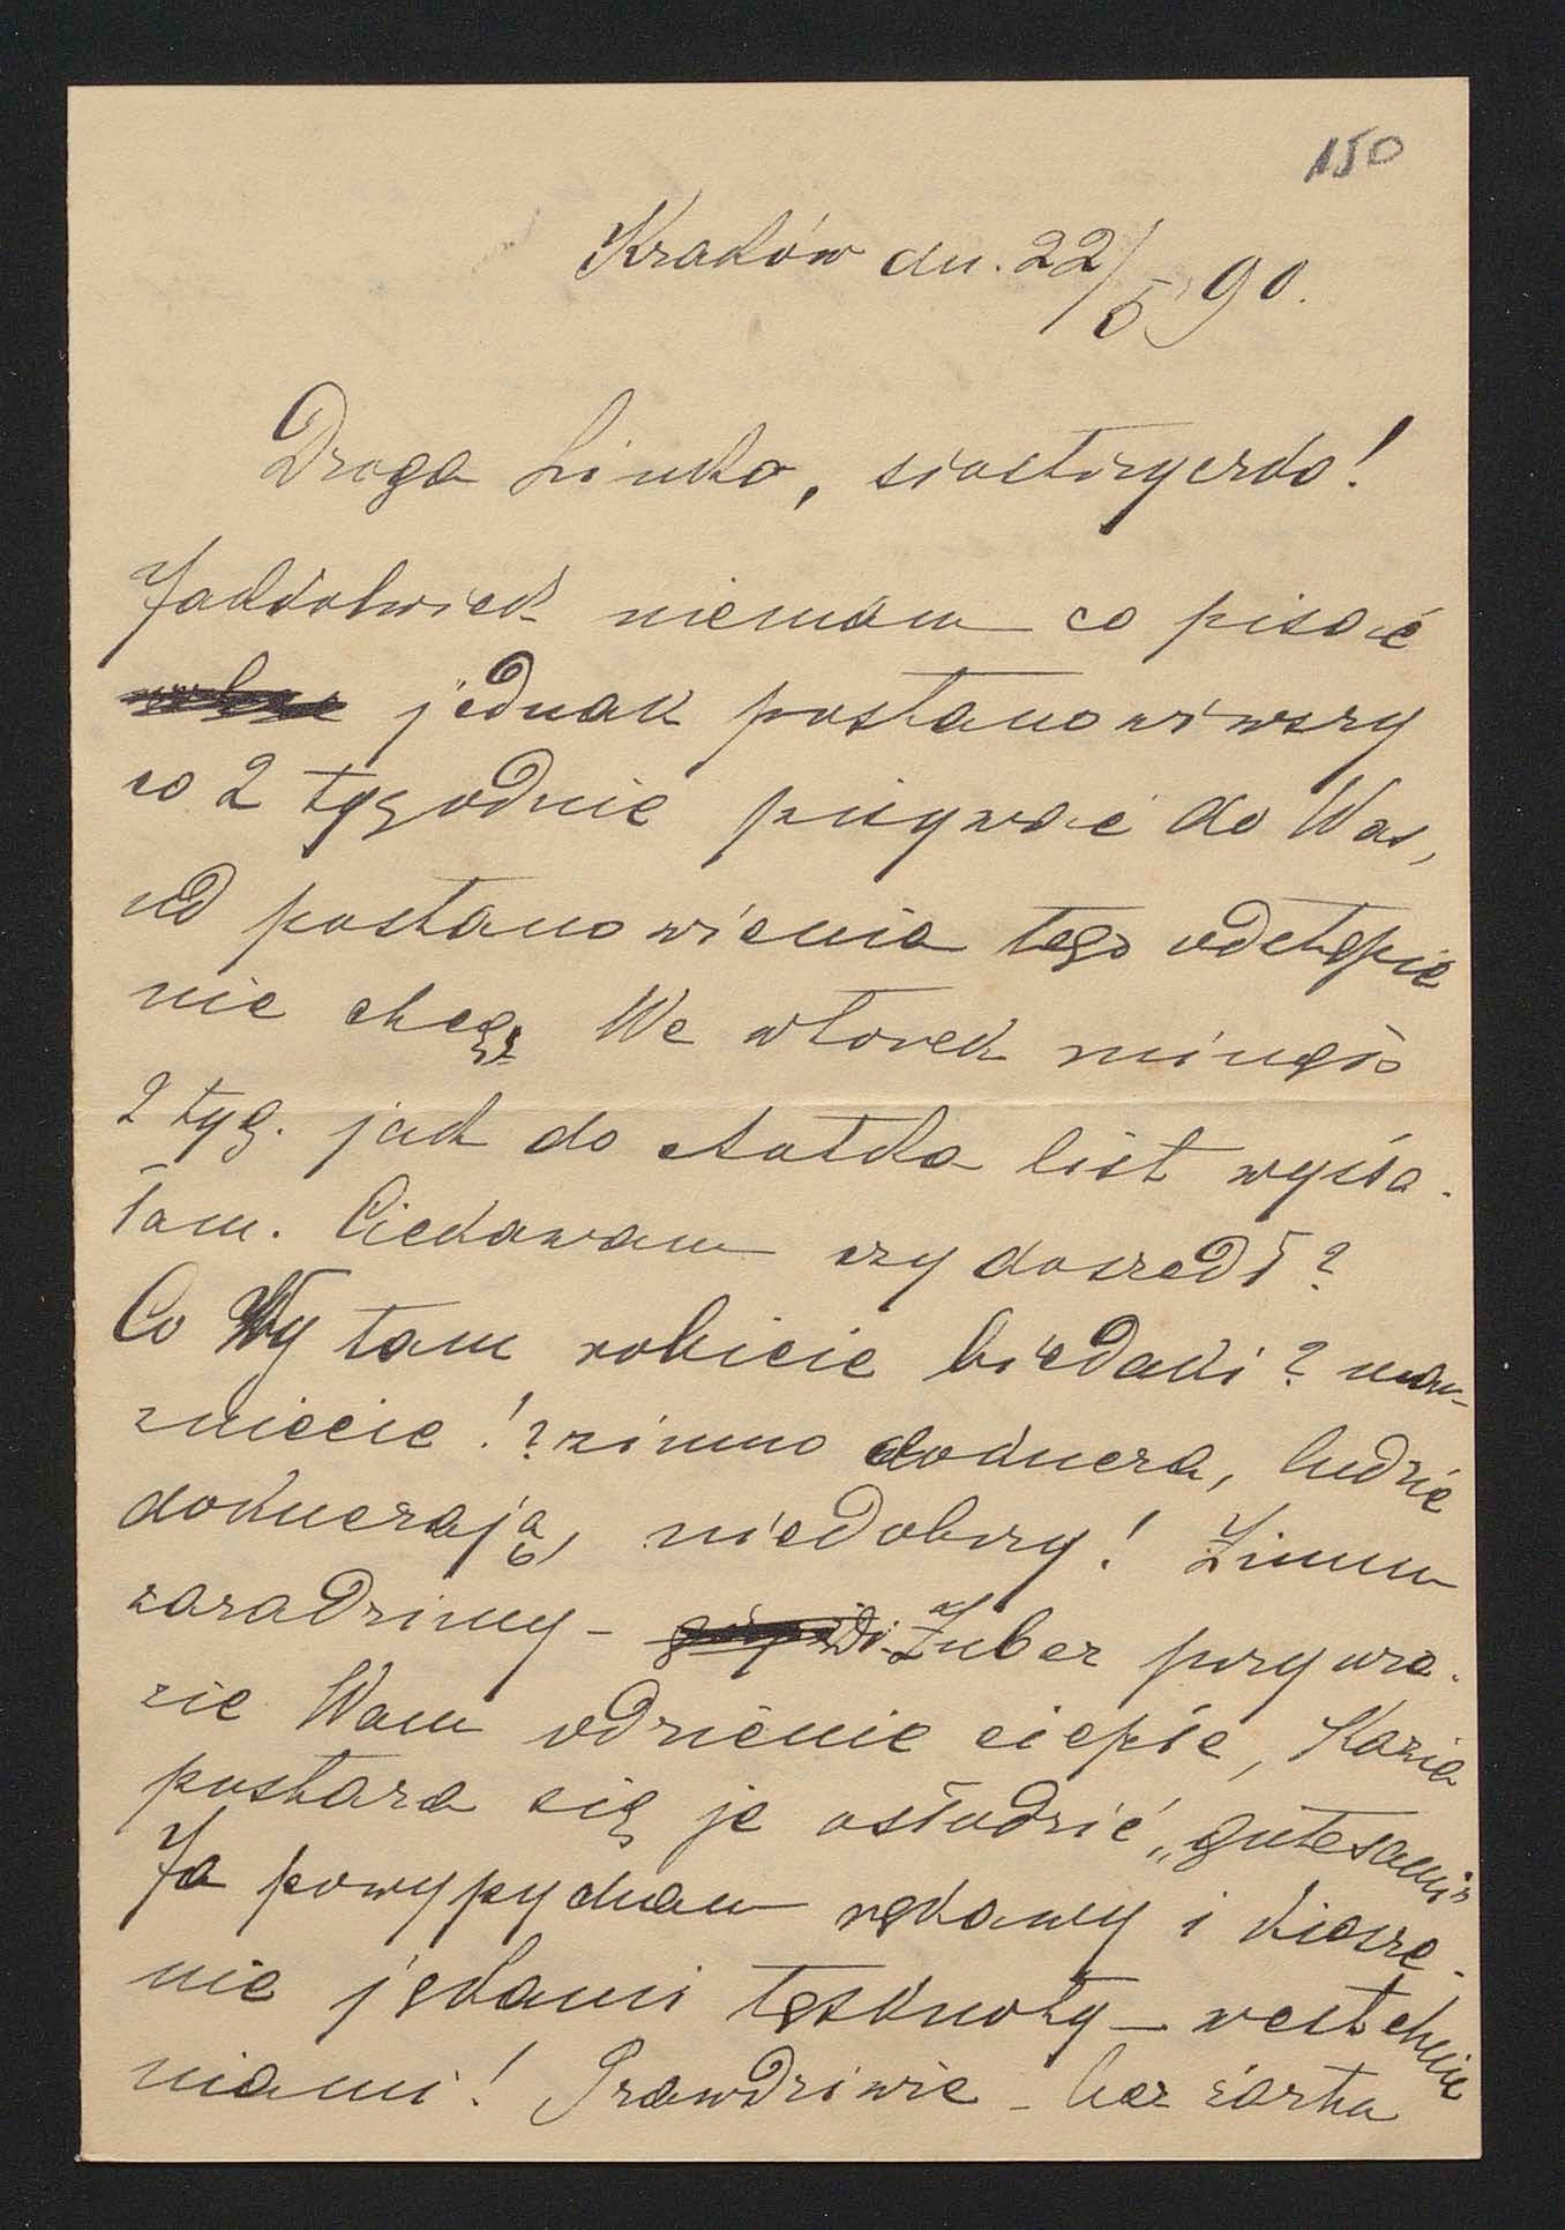 150
Kraków dn. 22/5 90.
Droga Linko, siostrzyczko!
Jakkolwiek niemam co pisać
jednak postanowiwszy
co 2 tygodnie pisywać do Was,
od postanowienia tego odstąpić
nie chcę. We wtorek minęło
2 tyg. jak do Antka list wysła-
łam. Ciekawam czy doszedł?
Co Wy tam robicie biedaki? mar-
zniecie!? zimno dokucza, ludzie
dokuczają, niedobrzy! Zimnu
zaradzimy - Zuber przywie-
zie Wam odzienie ciepłe, Kazia
postara się je osłodzić „gutesami"
Ja powypycham rękawy i kiesze-
nie jękami tęsknoty - westchnie
niami! Prawdziwie - bez żartu